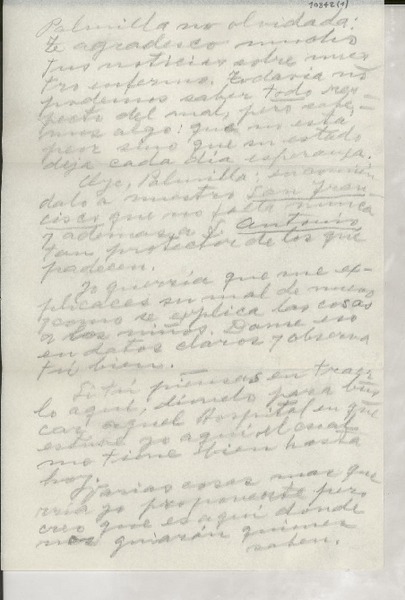 10342 (1)
Palmilla no olvidada:
te agradezco mucho
tus noticias sobre nues-
tro enfermo. Todavía no
podemos saber todo res-
pecto del mal, pero sabe-
mos algo: que no está
peor sino que su estado
deja cada día esperanza.
Oye, Palmilla: encomién-
dalo a nuestro San Fran-
cisco que no falta nunca
y además a S. Antonio
tan protector de los que
padecen.
Yo querría que me ex-
plicases su mal de nuevo
como se explica las cosas
a los niños. Dame eso
en datos claros y observa
tú bien.
Si tú piensas en traer-
lo aquí, dímelo para bus-
car aquel Hospital en que
estuve yo aquí, el cual
me tiene bien hasta
hoy.
Varias cosas mas que-
rría yo proponerte pero
creo que es aquí donde
nos guiarán quienes
saben.